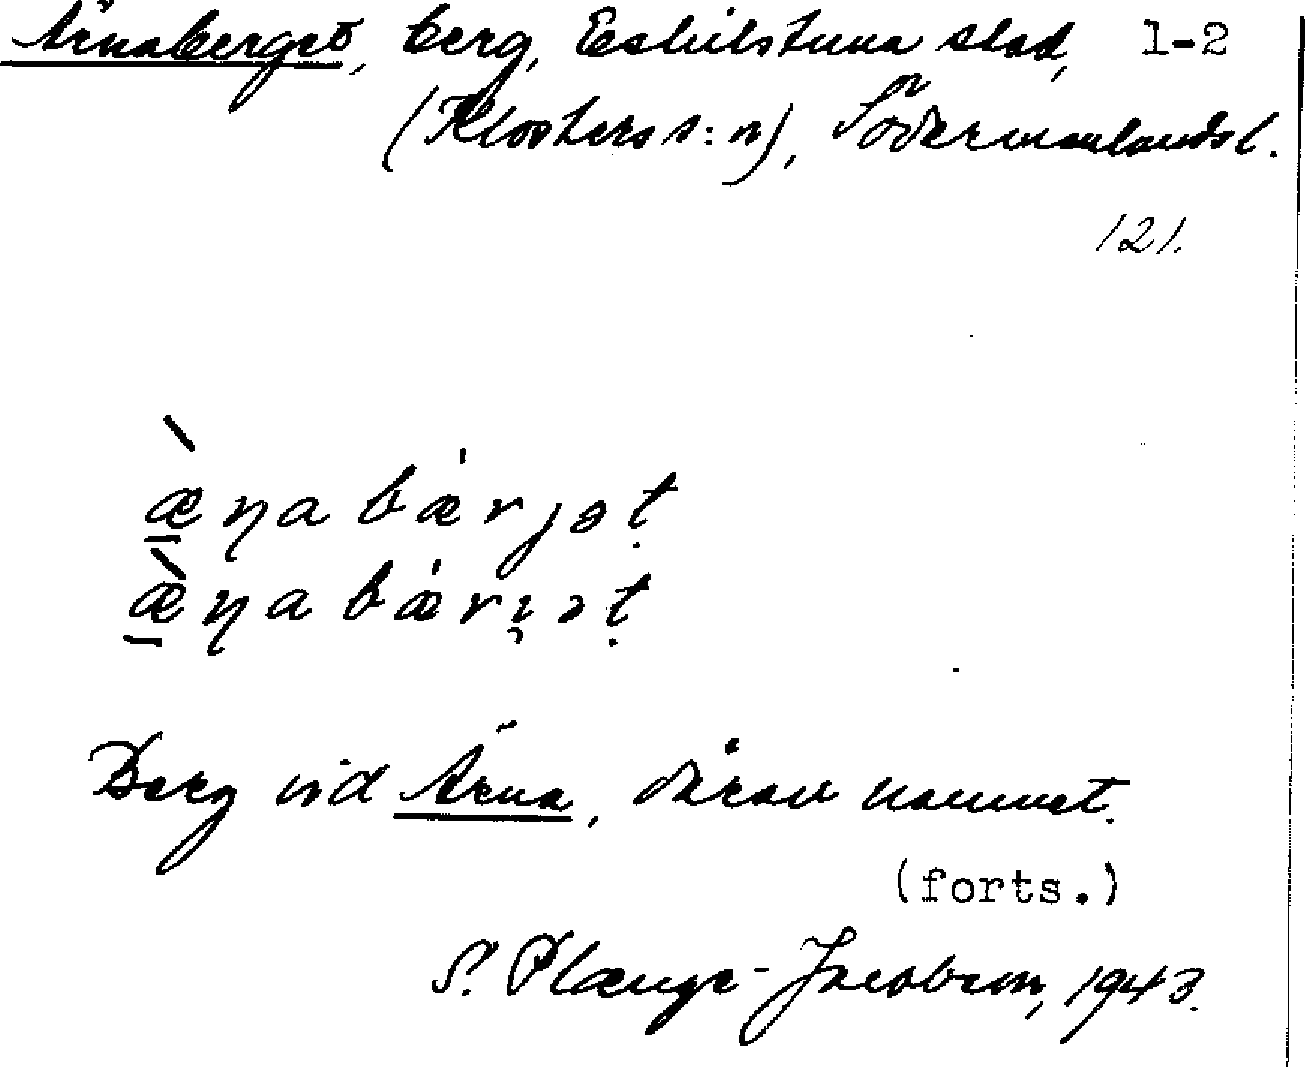 Ärnaberget, berg, Eskilstuna stad, 1-2
(Klosters s:n), Södermanlands l.
121.
æ̀ŋabárjət
æ̀ŋabári̯ət
Berg vid Ärna, därav namnet.
(forts.)
S. Plænge-Jacobson, 1943.